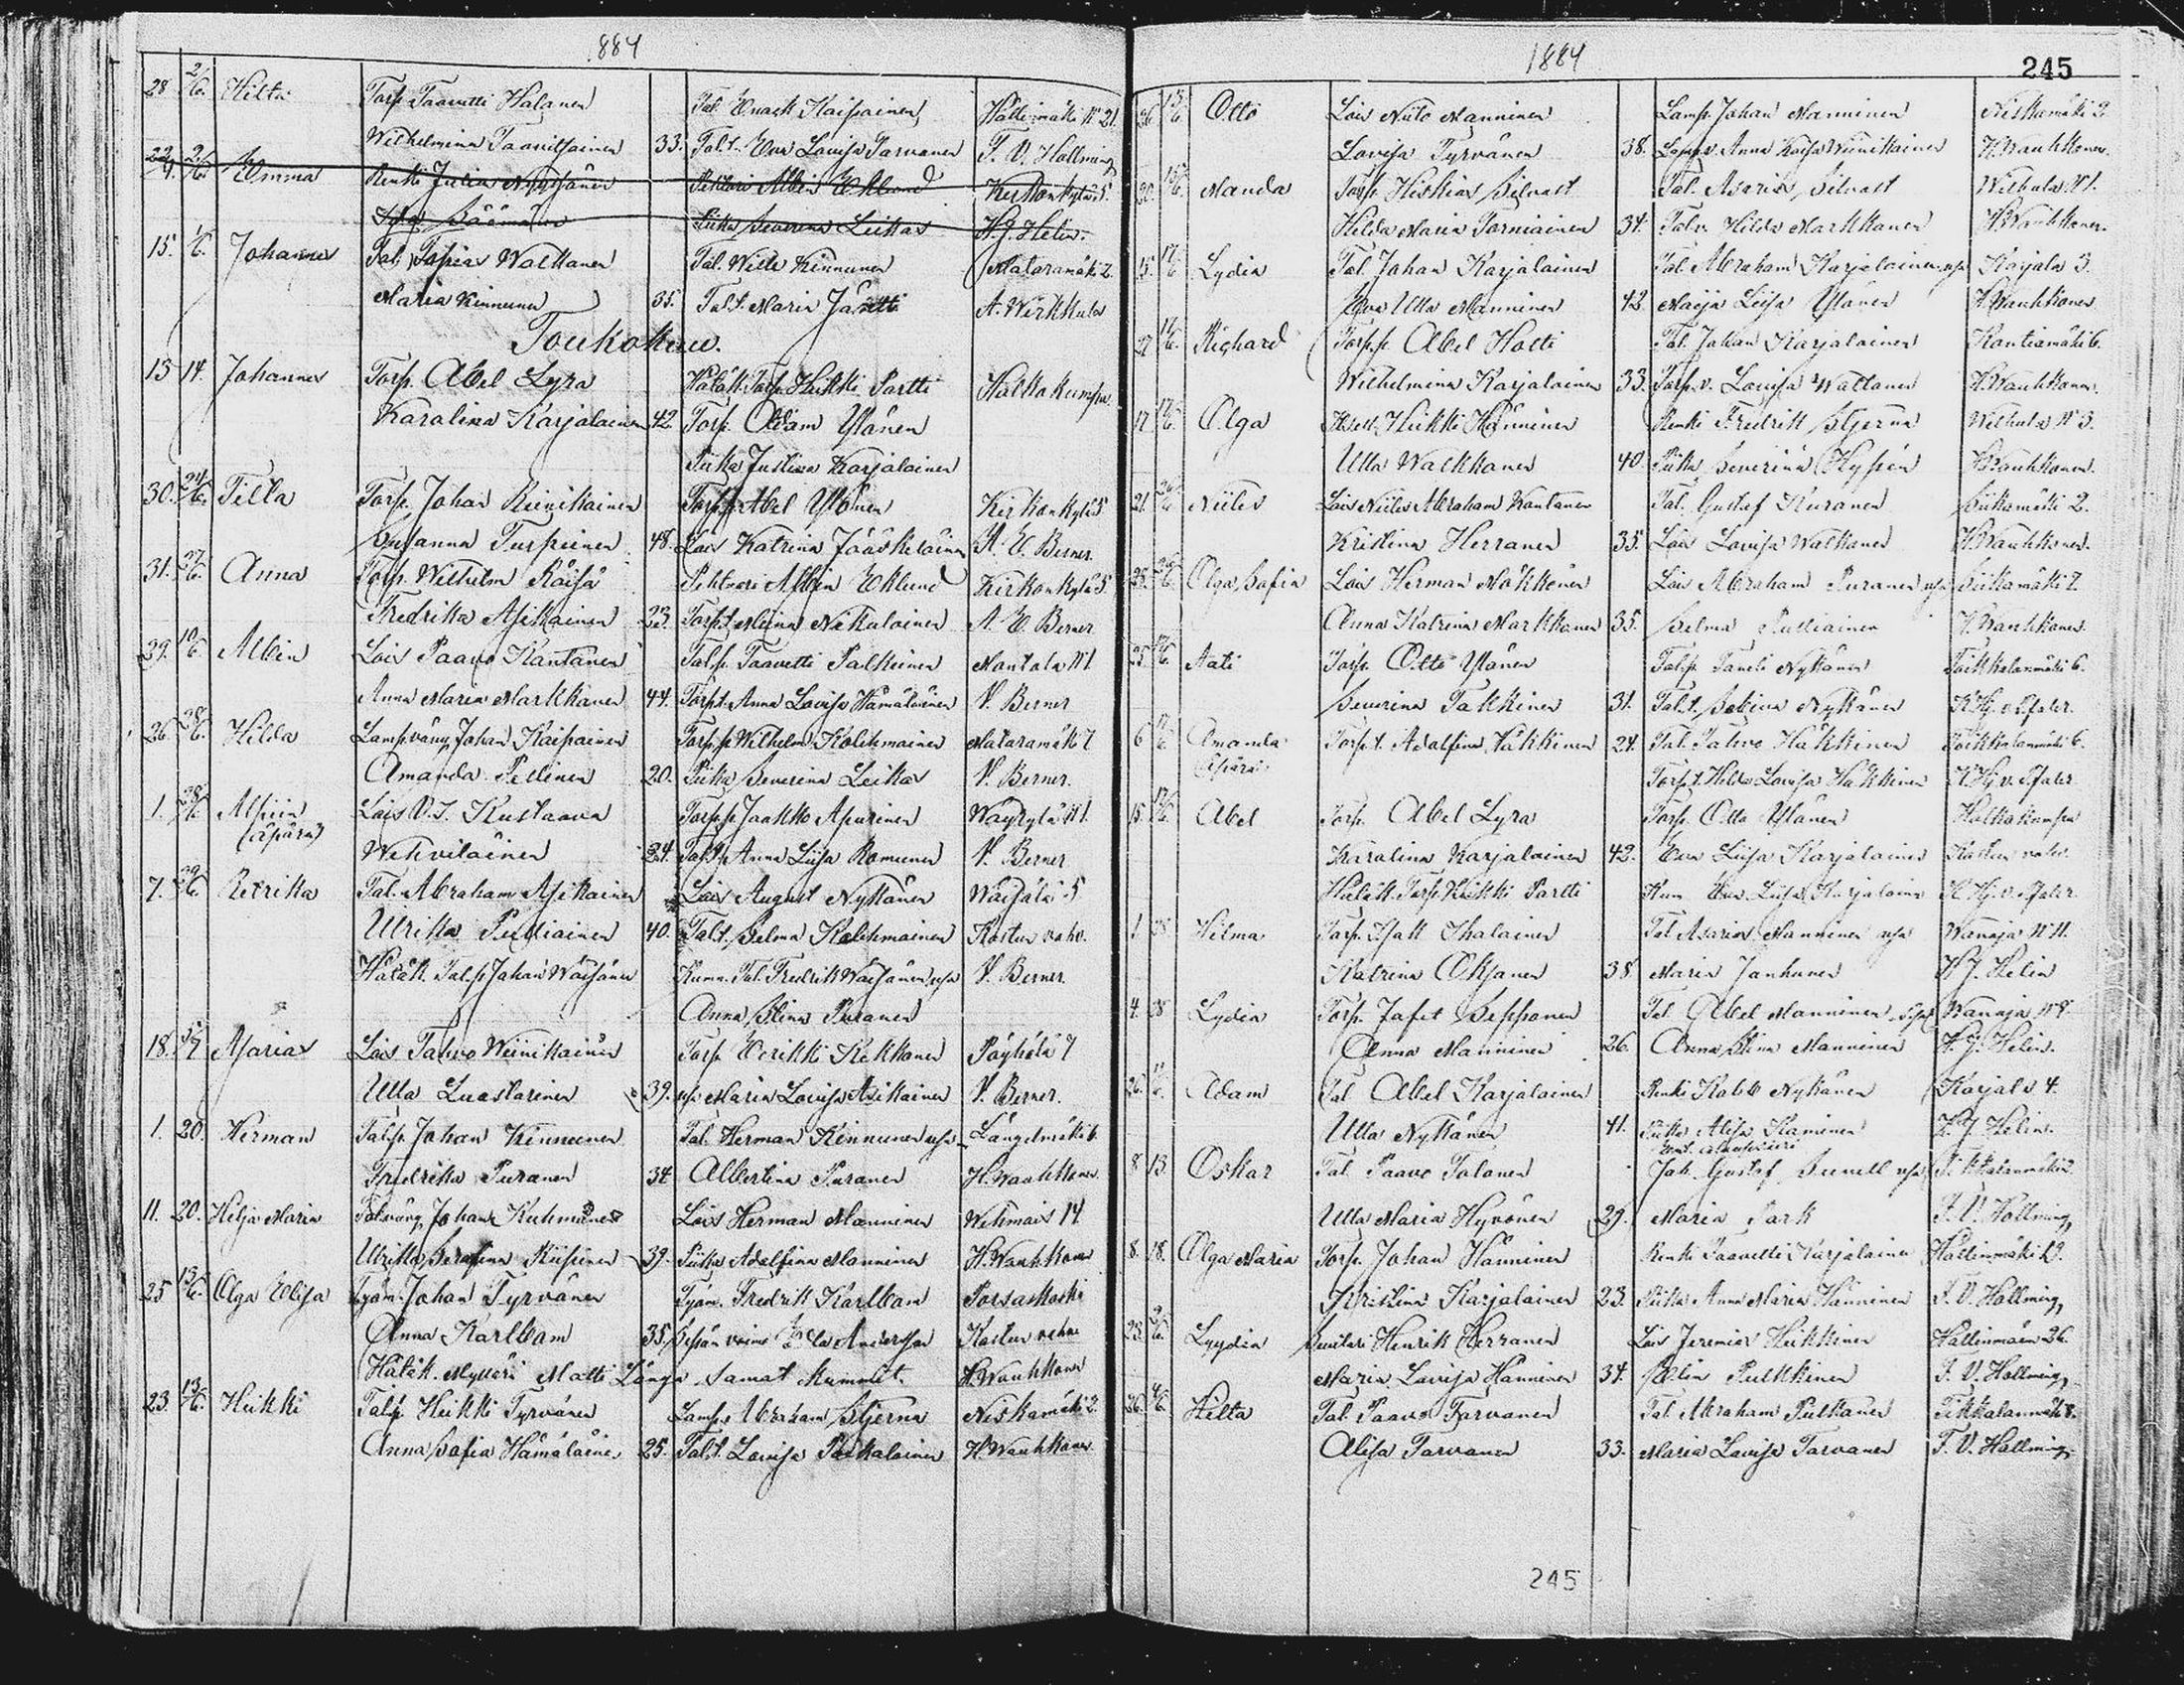 1884
28 2/6 Hilta Torp. Taavetti Halanen Tal. Enock Kaipainen Hällinmäki N 21.
Wilhelmina Taavitsainen 33. Tal.t. Eva Lovisa Tarvanen F. V. Hallming
22/4 2/6 Emma Renki Julius Nykänen Pehtori Albin Eklund Kirkonkylä 5.
Säämänen Piika Severina Leikas H. J. Helin.
15. /6. Johannes Tal. Topias Walkanen Tal. Wille Kinnunen Mataramäki 2.
Maria Kinnunen 35. Tal.t. Maria Jäntti A. Wirkkula
Toukokuu.
13 14. Johannes Torp. Abel Lyra Hätäk. Torp. Heikki Partti Halkokumpu
Karalina Karjalainen 42. Torp. Adam Ylänen
Piika Justiina Karjalainen
30. 24/6. Tilta Torp. Johan Reinikainen Torp.p. Abel Ylönen Kirkonkylä 5
Susanna Turpeinen 48. Lois Katrina Jääskeläinen A. E. Berner.
31. 27/6. Anna Torp. Wilhelm Räisä Pehtoori Albin Eklund Kirkonkylä 5.
Fredrika Asikainen 23. Torp.t. Miina Nikulainen A. E. Berner
29. 10/6. Albin Lois Paavo Kantanen Tal.p. Taavetti Palkeinen Montola N 1.
Anna Maria Markkanen 44. Torp.t. Anna Lovisa Hämäläinen V. Berner
26 28/6. Hilda Lamp.vävy Johan Kaipainen Torp.p. Wilhelm Kolehmainen Mataramäki 7
Amanda Pellinen 20. Piika Severina Leikas V. Berner.
1. 28/6 Alpiin Lois V. J. Kustaava Torp.p. Jaakko Apurinen Wäyrylä N 1.
(äpärä)
Wehviläinen 24. Tal.t. Anna Liisa Romunen V. Berner
7. 29/6. Retrika Tal. Abraham Asikainen Lois August Nykänen Waijala 5
Ulrika Pulliainen 40. Tal.t. Selma Kolehmainen Kastun vahv.
Hätäk. Tal.p. Johan Wäisänen Kumn. Tal. Fredrik Wäisänen vsa V. Berner.
Anna Stina Puranen
18. 3/7 Asarias Lois Tahvo Wiinikainen Torp. Eerikki Kekkonen Pöyhölä 7
Ulla Luastarinen 39. vs. Maria Lovisa Asikainen V. Berner.
1. 20. Herman Tal.p. Johan Kinnunen Tal. Herman Kinnunen vsa Längelmäki 6.
Fredrika Puranen 34 Albertina Puranen H. Wauhkonen
11. 20. Hilja Maria Tal.vävy Johan Kuhmonen Lois Herman Manninen Wehmais 14
Ulrika Serafina Kiispinen 39. Piika Adolfina Manninen H. Wauhkonen
25 13/6. Olga Elisa Työm. Johan Tyrvänen Työm. Fredrik Karlbom Porsaskoski
Anna Karlbom 35 Sepän vaimo Andersson Kastun vahv
Hätäk. Mylläri Matti Länga samat kummit. H. Wauhkonen
23. 13/6. Heikki Tal.p. Heikki Tyrvänen Lamp. Abraham Stjerna Niskamäki 2.
Anna Sofia Hämäläinen 25. Tal.t. Lovisa Poikalainen H. Wauhkonen
1884 245
26 13/6 Otto Lois Niilo Manninen Lamp. Johan Manninen Niskamäki 2.
Lovisa Tyrvänen 38. Lamp.v. Anna Kaisa Wiinikainen H. Wauhkonen.
20. 15/6. Manda Torp. Hiskias Silvast Tal. Asarias Silvast Wilhula N 1.
Hilda Maria Torniainen 34. Tal.v. Hilda Markkanen H. Wauhkonen.
15. 17/6 Lydia Tal. Johan Karjalainen Tal. Abraham Karjalainen vsa Karjala 3.
Eeva Ulla Manninen 42 Maija Liisa Ylänen H. Wauhkonen
27 17/6. Richard Torp.p. Abel Holti Tal. Johan Karjalainen Kontiamäki 6.
Wilhelmina Karjalainen 33. Torp.v. Lovisa Wallanen H. Wauhkonen.
17. 17/6. Olga Itsell. Heikki Hänninen Renki Fredrik Stjerna Wilhula N 3.
Ulla Walkkanen 40 Piika Severina Hypén H. Wauhkonen.
21. 24/6 Niiles Lois Niiles Abraham Kantanen Tal. Gustaf Kuranen Siikamäki 2.
Kristiina Herranen 35. Lois Lovisa Walkanen H. Wauhkonen.
25. 26/6. Olga Sofia Lois Herman Mökkönen Lois Abraham Puranen vsa Siikamäki 7.
Anna Katrina Markkanen 35. Selma Pulliainen H. Wauhkonen.
25. /6. Aati Torp. Otto Ylänen Tal.p. Taneli Nykänen Poikkolanmäki 6.
Severina Takkinen 31. Tal.t. Sabina Nykänen K. Hj. v. Pfaler.
6 17/6 Amanda Torp.t. Adolfina Häkkinen 24. Tal. Tahvo Häkkinen Poikkolanmäki 6.
Äpärä.
Torp.t. Hilda Lovisa Häkkinen K. Hj. v. Pfaler
15. 17/6 Abel Torp. Abel Lyra Torp. Otto Ylänen Halkokumpu
Karalina Karjalainen 42. Eva Liisa Karjalainen Kastun vahv.
Hätäk. Torp. Heikki Partti Kum Eva Liisa Karjalainen K. Hj. v. Pfaler.
1 Hilma Torp. Isak Ihalainen Tal Asarias Manninen vsa Wanaja N 11.
Katrina Oksanen 38. Maria Janhunen H. J. Helin
4. Lydia Torp. Jafet Seppänen Tal. Abel Manninen Wanaja N 9.
Anna Manninen 26. Anna Stina Manninen H. J. Helin.
26. Adam Tal Abel Karjalainen Renki Kalle Nykänen Karjala 4.
Ulla Nykänen 41. Piika Alisa Kaminen H. J. Helin.
8 13. Oskar Tal Paavo Talonen Joh. Gustaf Sunell vsa Tikkalanmäki 2
Ulla Maria Hyvönen 29. Maria Park F. V. Hallming
8. 18. Olga Maria Torp. Johan Hänninen Renki Taavetti Karjalainen Hällinmäki 27.
Kristina Karjalainen 23. Piika Anna Maria Hänninen F. V. Hallming
23. /6. Lyydia Suutari Henrik Herranen Lois Jeremias Heikkinen Hällinmäen 26.
Maria Lovisa Hänninen 34. Elin Pulkkinen F. V. Hallming
26. 4/6. Hilta Tal. Paavo Tarvanen Tal. Abraham Pulkanen Tikkalanmäki 8.
Alisa Tarvanen 33. Maria Lovisa Tarvanen F. V. Hallming
245